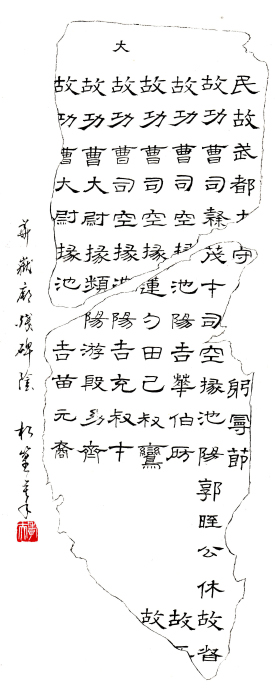 民故武都太守躬節
故功曹司隸茂才司空掾池陽郭晊公休故督
故功曹司空掾池陽吉華伯昉故
故功曹司空掾蓮勺田己叔鸞故
大
故功曹司空掾池陽吉充叔才
故功曹大尉掾頻陽游殷幼齊
故功曹大尉掾池吉苗元裔
華嶽廟殘碑陰